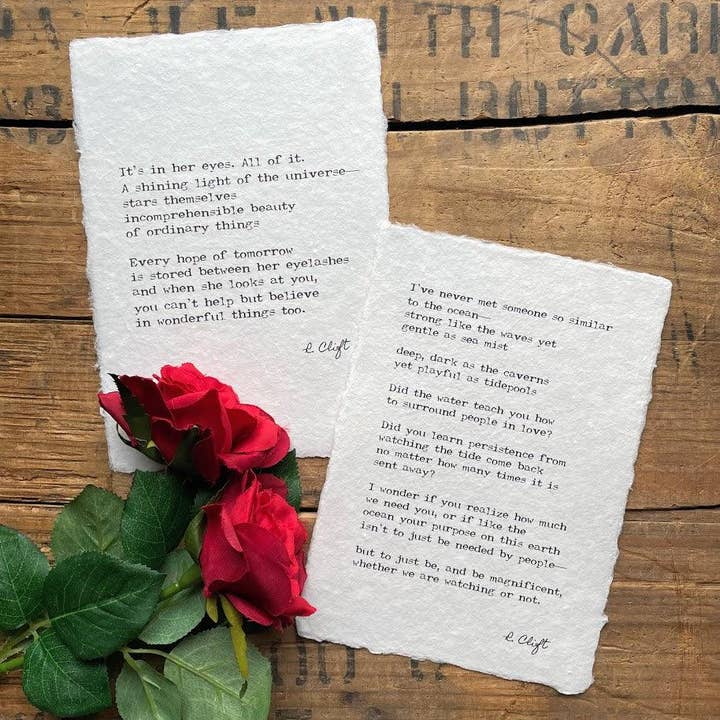 WITH CARE
BOTTO
It's in her eyes. All of it.
A shining light of the universe—
stars themselves
incomprehensible beauty
of ordinary things
Every hope of tomorrow
is stored between her eyelashes
and when she looks at you,
you can't help but believe
in wonderful things too.
R. Clift
I've never met someone so similar
to the ocean—
strong like the waves yet
gentle as sea mist
deep, dark as the caverns
yet playful as tidepools
Did the water teach you how
to surround people in love?
Did you learn persistence from
watching the tide come back
no matter how many times it is
sent away?
I wonder if you realize how much
we need you, or if like the
ocean your purpose on this earth
isn't to just be needed by people—
but to just be, and be magnificent,
whether we are watching or not.
R. Clift